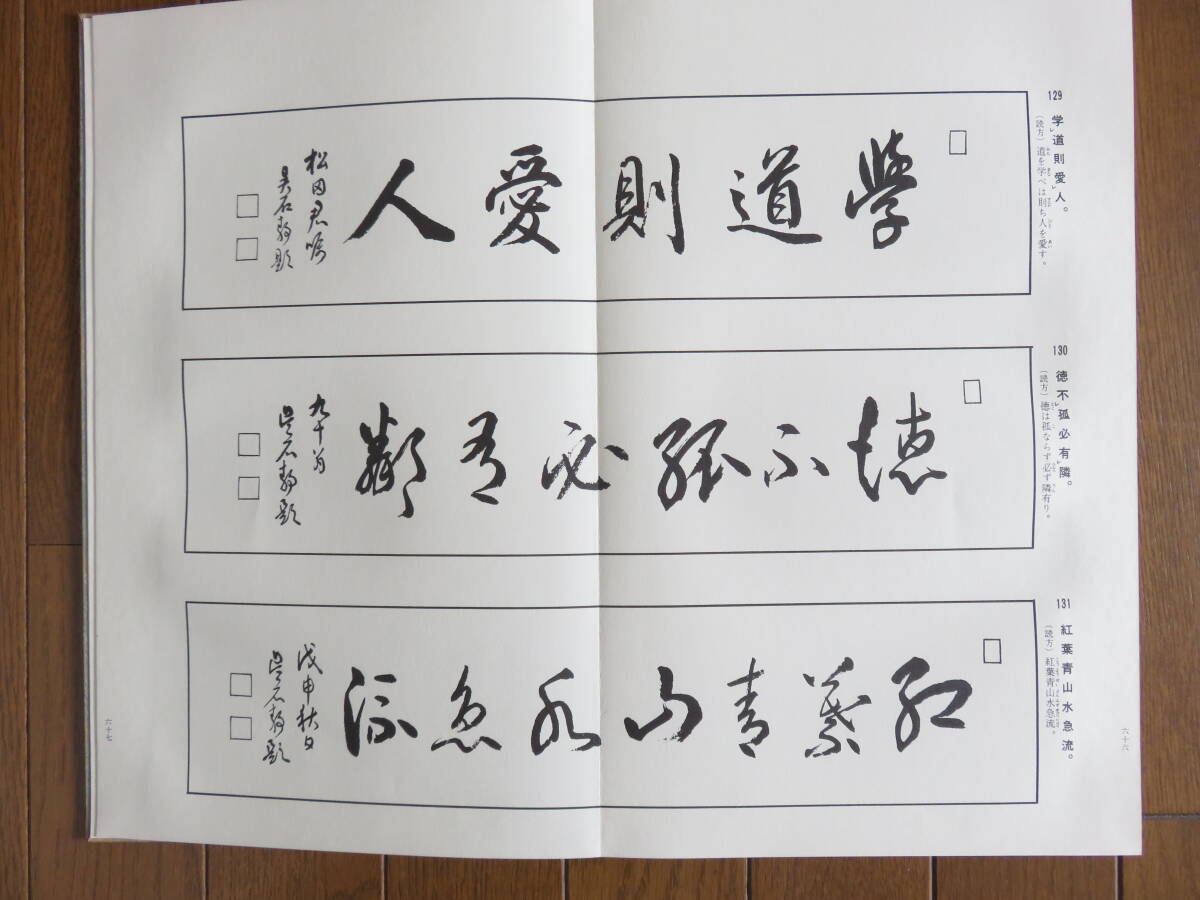 129
学道則愛人。
(読方)道を学べば則ち人を愛す。
學道則愛人
松田君嘱
昊石静題
130
徳不孤必有隣。
(読方)徳は孤ならず必ず隣有り。
徳不孤必有鄰
九十翁
昊石静題
131
紅葉青山水急流。
(読方)紅葉青山水急流。
紅葉青山水急流
戊申秋日
昊石静題
六十六
六十七